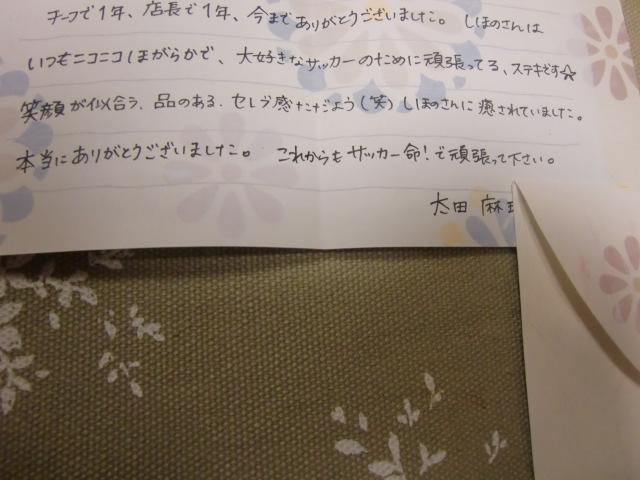 チーフで1年、店長で1年、今までありがとうございました。しほのさんは
いつもニコニコほがらかで、大好きなサッカーのために頑張ってる、ステキです☆
笑顔が似合う、品のある、セレブ感ただよう(笑)しほのさんに癒されていました。
本当にありがとうございました。これからもサッカー命!で頑張って下さい。
太田 麻